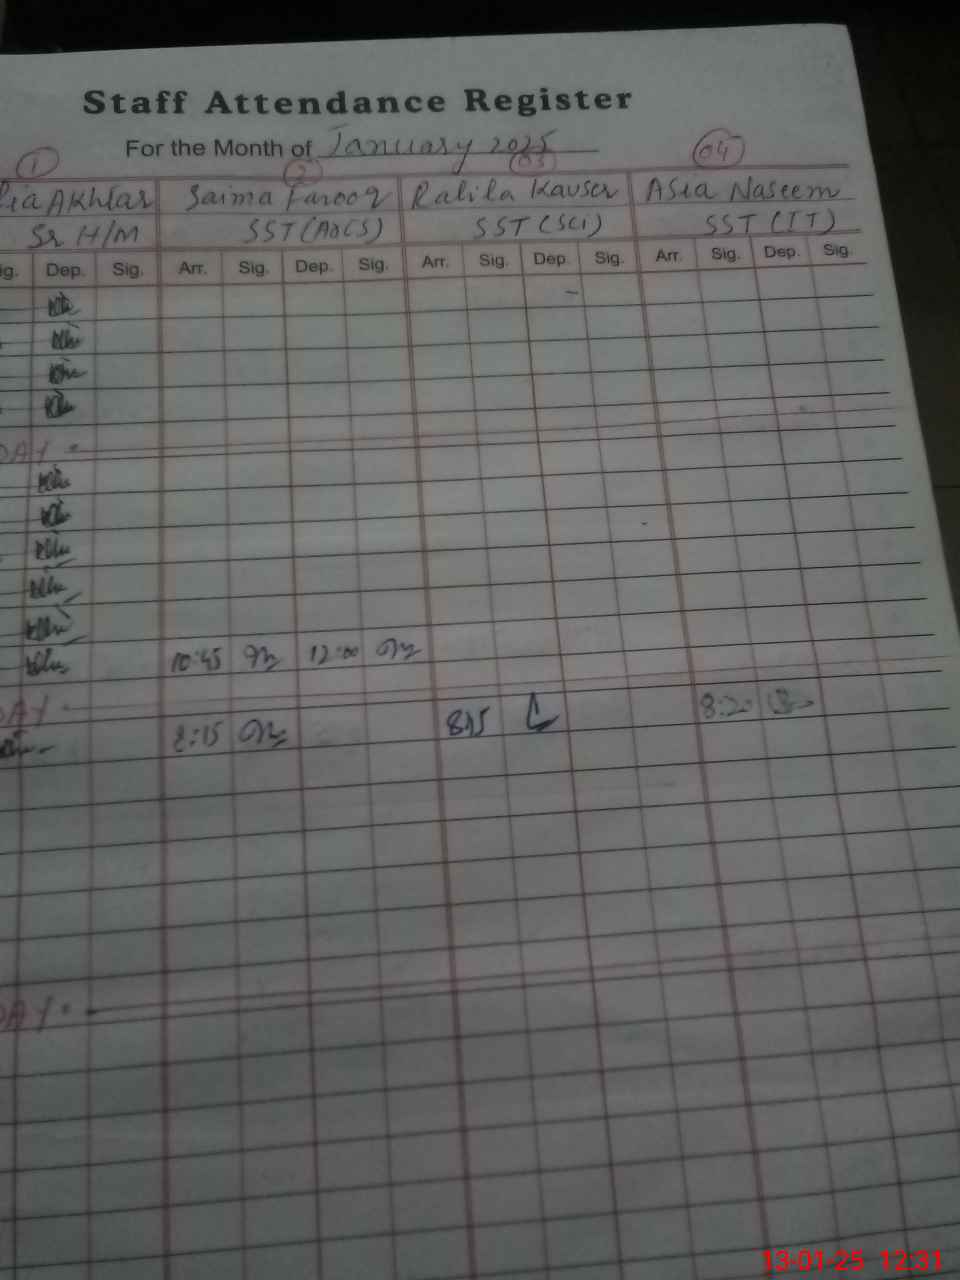 Staff Attendance Register
For the Month of January 2025
1 2 03 04
Akhtar Saima Farooq Kauser Asia Naseem
Sr H/M SST SST (Sci) SST (IT)
ig. Dep. Sig. Arr. Sig. Dep. Sig. Arr. Sig. Dep. Sig. Arr. Sig. Dep. Sig.
DAY
10:45 12:00
DAY
8:15 8:15 8:20
DAY
13-01-25 12:31